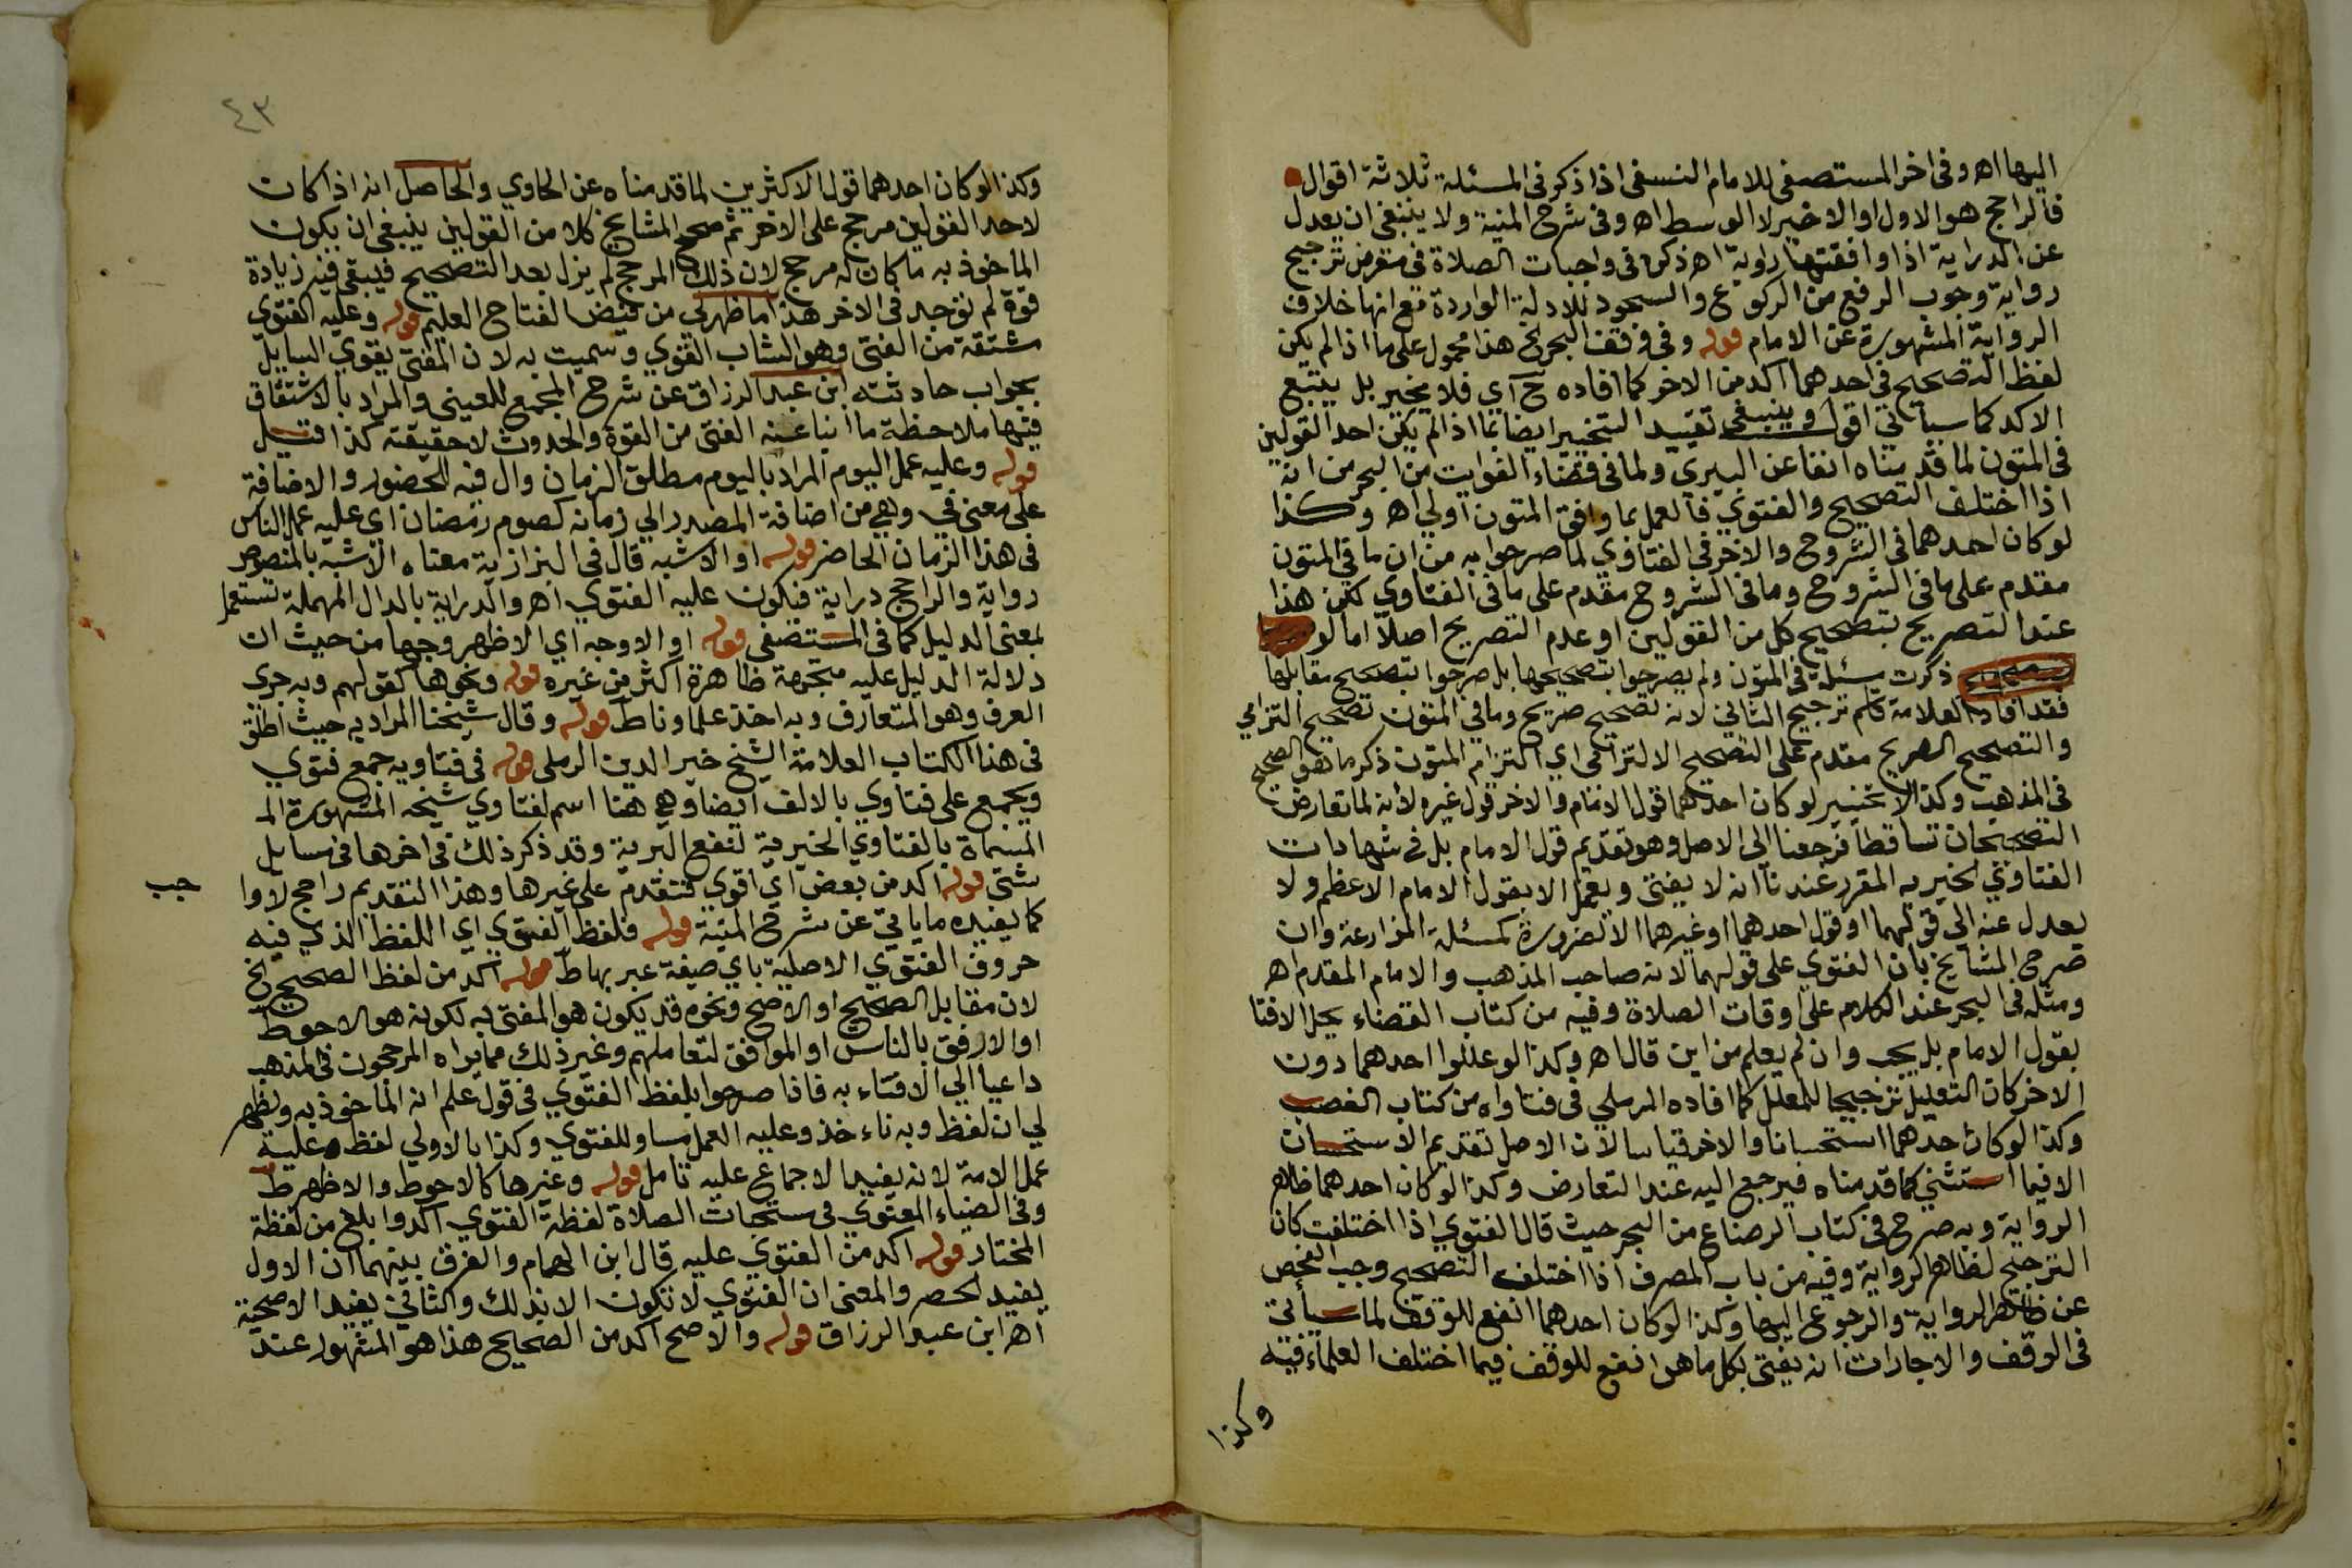 اليها اه وفي اخر المستصفى للامام النسفي اذا ذكر في المسئلة ثلاثة اقوال
فالراجح هو الاول او الاخير لا الوسط اه وفي شرح المنية ولا ينبغي ان يعدل
عن الدراية اذا وافقتها رواية اه ذكره في واجبات الصلاة في معرض ترجيح
رواية وجوب الرفع من الركوع والسجود للادلة الواردة مع انها خلاف
الرواية المشهورة عن الامام قوله وفي وقف البحر الخ هذا محمول على ما اذا لم يكن
لفظ التصحيح في احدهما اكد من الاخر كما افاده ح اي فلا يخير بل يتبع
الاكد كما سياتي اقول وينبغي تقييد التخيير ايضا بما اذا لم يكن احد القولين
في المتون لما قدمناه انفا عن البيري ولما في قضاء الفوايت من البحر من انه
اذا اختلف التصحيح والفتوي فالعمل بما وافق المتون اولي اه وكذا
لو كان احدهما في الشروح والاخر في الفتاوي لما صرحوا به من ان ما في المتون
مقدم على ما في الشروح وما في الشروح مقدم على ما في الفتاوي لكن هذا
عند التصريح بتصحيح كل من القولين او عدم التصريح اصلا اما لو
ذكرت مسئلة في المتون ولم يصرحوا بتصحيحها بل صرحوا بتصحيح مقابلها
فقد افاد العلامة قاسم ترجيح الثاني لانه تصحيح صريح وما في المتون تصحيح التزامي
والتصحيح الصريح مقدم على التصحيح الالتزامي اي التزام المتون ذكر ما هو الصحيح
في المذهب وكذا لا تخيير لو كان احدهما قول الامام والاخر قول غيره لانه لما تعارض
التصحيحان تساقطا فرجعنا الى الاصل وهو تقديم قول الامام بل في شهادات
الفتاوي الخيريه المقرر عندنا انه لا يفتى ويعمل الا بقول الامام الاعظم ولا
يعدل عنه الى قولهما او قول احدهما او غيرهما الا لضرورة كمسئلة المزارعة وان
صرح المشايخ بان الفتوي على قولهما لانه صاحب المذهب والامام المقدم اه
ومثله في البحر عند الكلام على اوقات الصلاة وفيه من كتاب القضاء يحل الافتا
بقول الامام بل يجب وان لم يعلم من اين قال اه وكذا لو عللوا احدهما دون
الاخر كان التعليل ترجيحا للمعلل كما افاده الرملي في فتاواه من كتاب الغصب
وكذا لو كان احدهما استحسانا والاخر قياسا لان الاصل تقديم الاستحسان
الا فيما استثني كما قدمناه فيرجع اليه عند التعارض وكذا لو كان احدهما ظاهر
الرواية وبه صرح في كتاب الرضاع من البحر حيث قال الفتوي اذا اختلفت كان
الترجيح لظاهر الرواية وفيه من باب المصرف اذا اختلف التصحيح وجب الفحص
عن ظاهر الرواية والرجوع اليها وكذا لو كان احدهما انفع للوقف لما سياتي
في الوقف والاجارات انه يفتى بكل ما هو انفع للوقف فيما اختلف العلماء فيه
وكذا
٤٣
وكذا لو كان احدهما قول الاكثرين لما قدمناه عن الحاوي والحاصل انه اذا كان
لاحد القولين مرجح على الاخر ثم صحح المشايخ كلا من القولين ينبغي ان يكون
الماخوذ به ما كان له مرجح لان ذلك المرجح لم يزل بعد التصحيح فيبقى فيه زيادة
قوة لم توجد في الاخر هذا ما ظهر لي من فيض الفتاح العليم قوله وعليه الفتوي
مشتقة من الفتى وهو الشاب القوي وسميت به لان المفتي يقوي السايل
بجواب حادثته ابن عبد الرزاق عن شرح المجمع للعيني والمراد بالاشتقاق
فيها ملاحظة ما انبا عنه الفتى من القوة والحدوث لا حقيقته كذا قيل
قوله وعليه عمل اليوم المراد باليوم مطلق الزمان وال فيه للحضور والاضافة
على معنى في وهي من اضافة المصدر الي زمانه كصوم رمضان اي عليه عمل الناس
في هذا الزمان الحاضر قوله او الاشبه قال في البزازية معناه الاشبه بالمنصوص
رواية والراجح دراية فيكون عليه الفتوي اه والدراية بالدال المهملة تستعمل
بمعنى الدليل كما في المستصفى قوله او الاوجه اي الاظهر وجها من حيث ان
دلالة الدليل عليه متجهة ظاهرة اكثر من غيره قوله ونحوها كقولهم وبه جري
العرف وهو المتعارف وبه اخذ علماوناط قوله وقال شيخنا المراد به حيث اطلق
في هذا الكتاب العلامة الشيخ خير الدين الرملي قوله في فتاويه جمع فتوي
ويجمع على فتاوي بالالف ايضا وهي هنا اسم لفتاوي شيخه المشهورة الم
المسماة بالفتاوي الخيرية لنفع البرية وقد ذكر ذلك في اخرها في مسايل
شتى قوله اكد من بعض اي اقوي فتقدم على غيرها وهذا التقديم راجح لا وا
جب
كما يفيده ما ياتي عن شرح المنية قوله فلفظ الفتوي اي اللفظ الذي فيه
حروف الفتوي الاصلية باي صيغة عبر بها ط قوله اكد من لفظ الصحيح الخ
لان مقابل الصحيح او الاصح ونحوه قد يكون هو المفتى به لكونه هو الاحوط
او الارفق بالناس او الموافق لتعاملهم وغير ذلك مما يراه المرجحون في المذهب
داعيا الي الافتاء به فاذا صرحوا بلفظ الفتوي في قول علم انه الماخوذ به ويظهر
لي ان لفظ وبه ناء خذ وعليه العمل مساو للفتوي وكذا بالاولي لفظ وعليه
عمل الامة لانه يفيد الاجماع عليه تامل قوله وغيرها كالاحوط والاظهر ط
وفي الضياء المعنوي في مستحبات الصلاة لفظة الفتوي اكد وابلغ من لفظة
المختار قوله اكد من الفتوي عليه قال ابن الهمام والفرق بينهما ان الاول
يفيد الحصر والمعنى ان الفتوي لا تكون الا بذلك والثاني يفيد الاصحية
اه ابن عبد الرزاق قوله والاصح اكد من الصحيح هذا هو المشهور عند